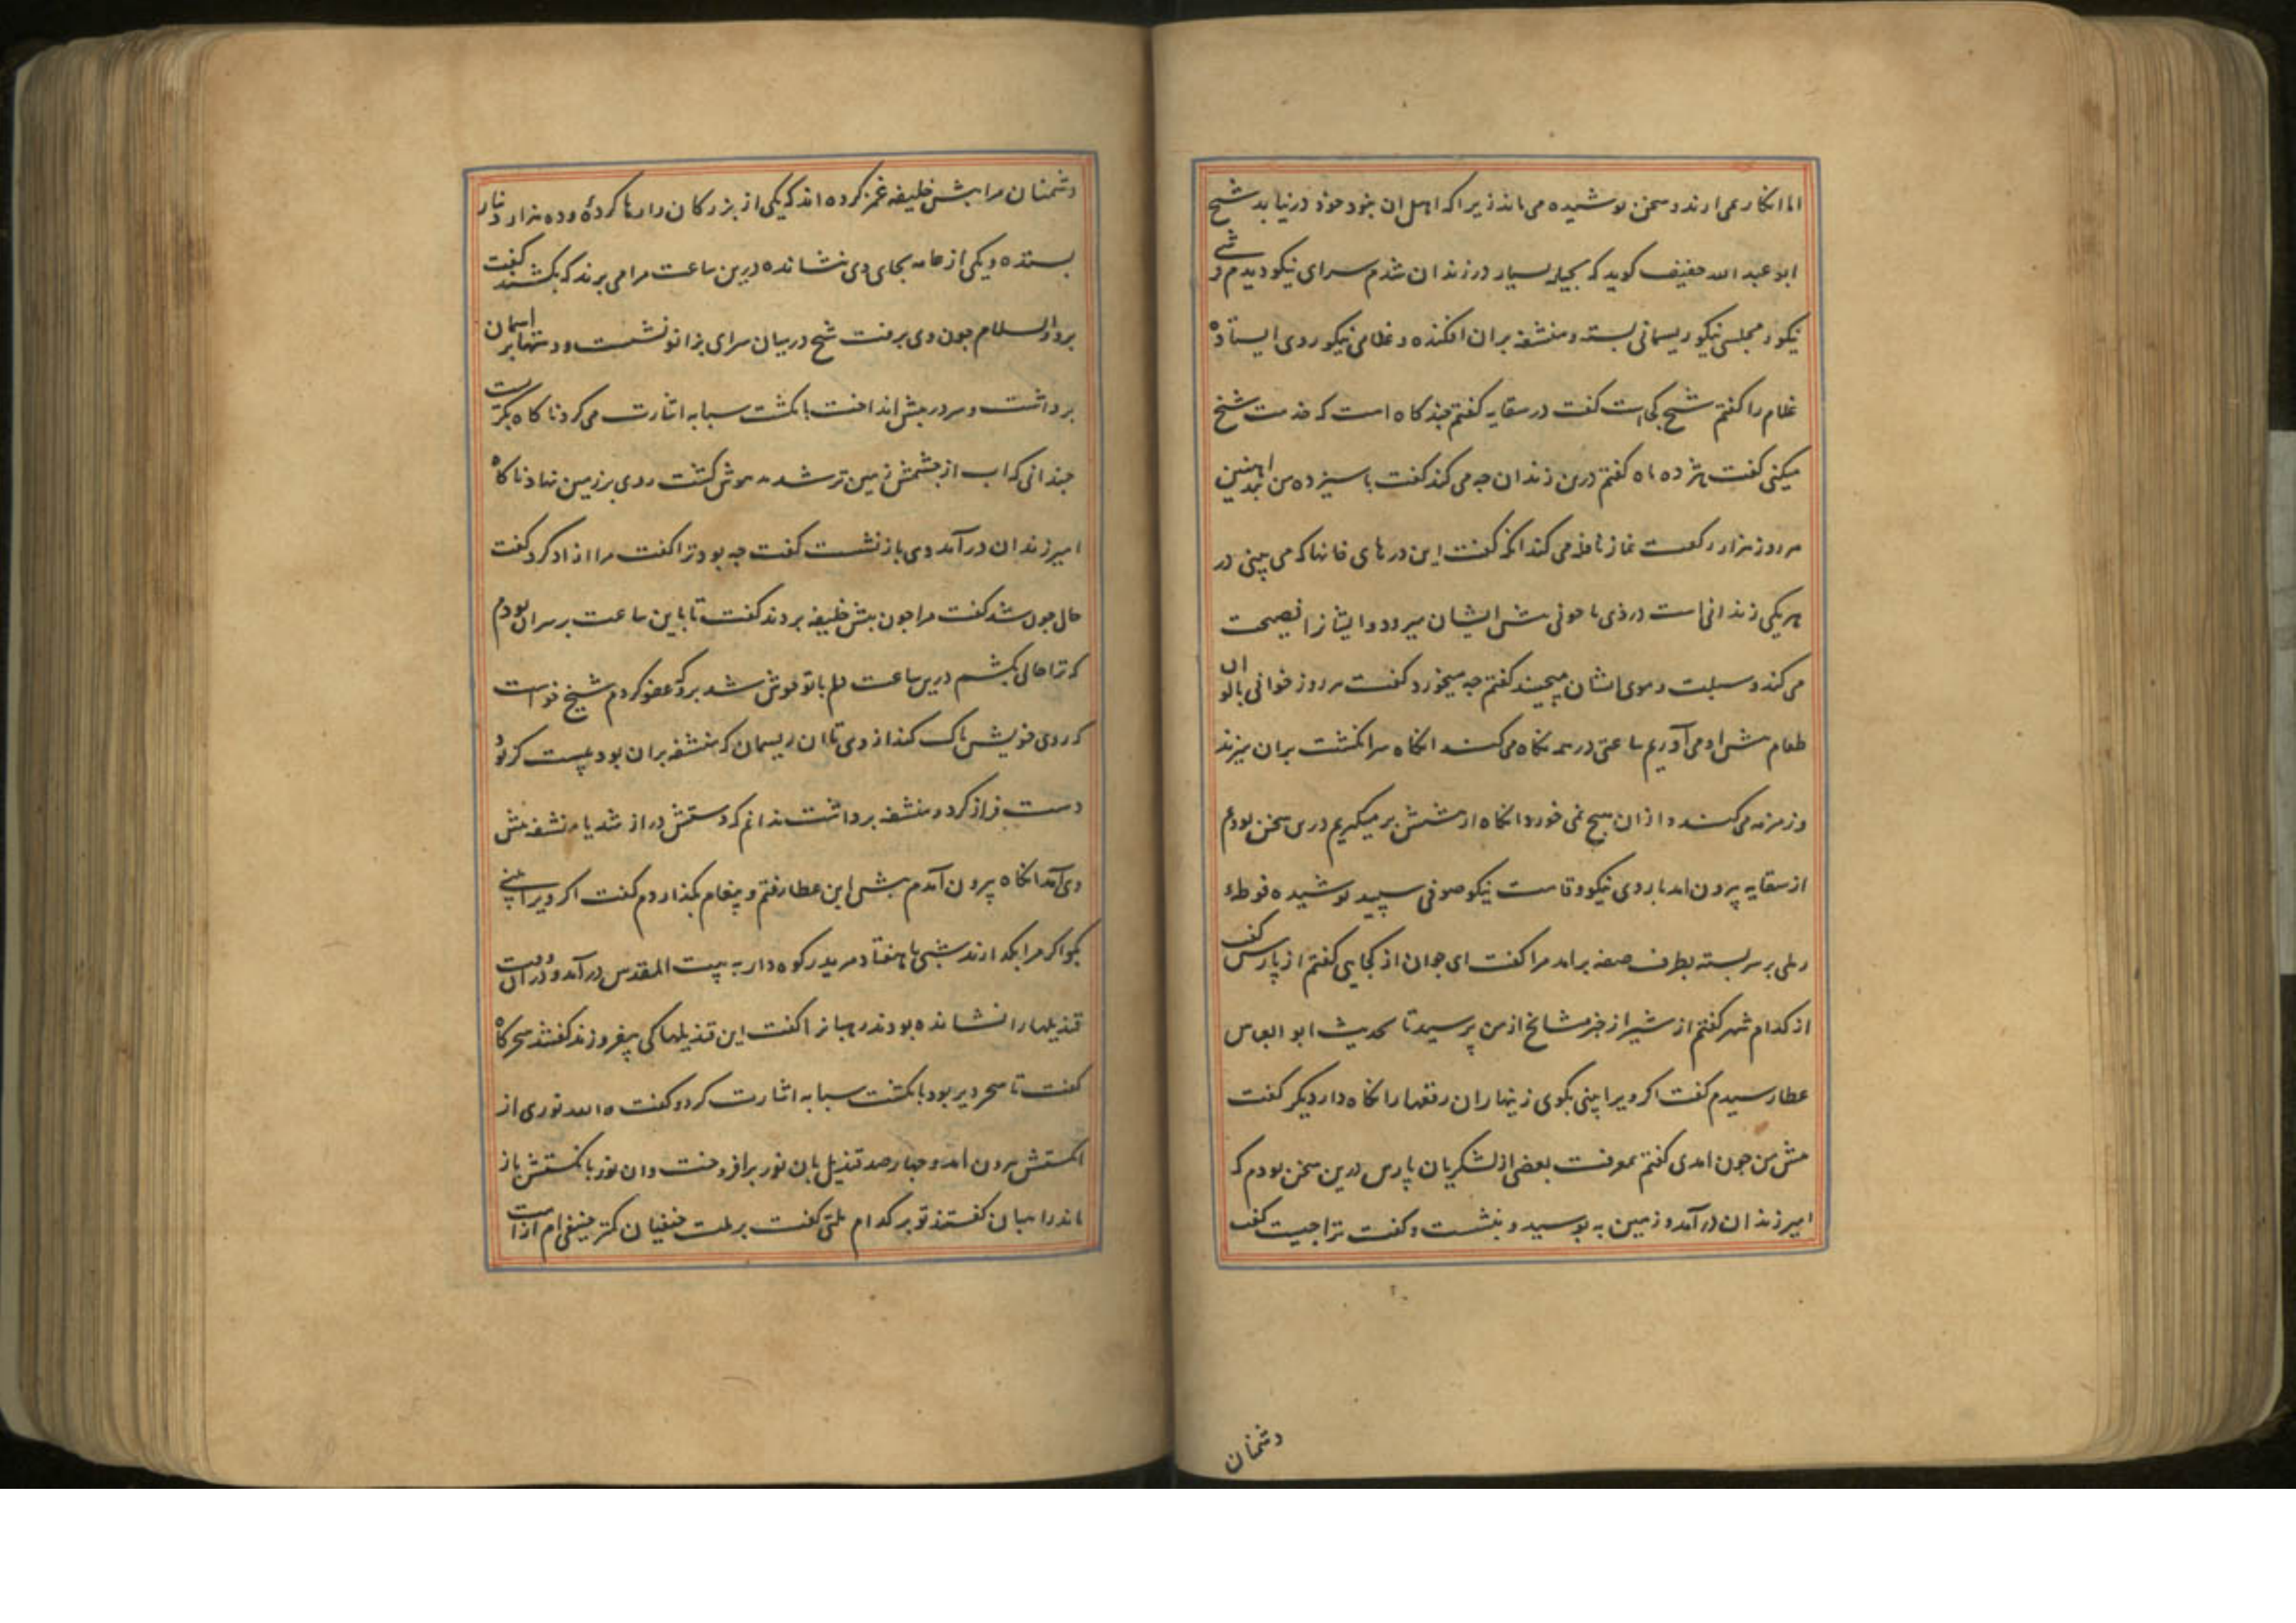 اما انکار می ارند و سخن پوشیده می ماند زیرا که اهل ان بخود خود در نیابد شیخ
ابو عبد الله خفیف کوید که بحیله بسیار در زندان شدم سرای نیکو دیدم و
نیکو و مجلسی نیکو ریسمانی بسته و منشفه بران افکنده و غلامی نیکو روی ایستاده
غلام را کفتم شیخ کجاست کفت در سقایه کفتم چند کاه است که خدمت شیخ
میکنی کفت هژده ماه کفتم درین زندان چه می کند کفت با سیزده من بند اهنین
هر روز هزار رکعت نماز نافله می کند انکه کفت این درهای خانها که می بینی در
هر یکی زندانی است دزدی با خونی پش ایشان میرود و ایشانرا نصیحت
می کند و سبلت و موی ایشان میچیند کفتم چه میخورد کفت هر روز خوانی بالوان
طعام پش او می آوریم ساعتی در همه نکاه می کند انکاه سر انکشت بران میزند
و زمزمه می کند و ازان هیچ نمی خورد انکاه از پشش بر میکیریم درین سخن بودیم
از سقایه پرون امد با روی نیکو و قامت نیکو صوفی سپید پوشیده فوطهٔ
رملی بر سر بسته بطرف صفه برامد مرا کفت ای جوان از کجایی کفتم از پارس کفت
از کدام شهر کفتم از شیراز خبر مشایخ از من پرسید تا بحدیث ابو العباس
عطا رسیدم کفت اکر ویرا بینی بکوی زینهار ان رقعها را نکاه دار دیکر کفت
پش من چون امدی کفتم بمعرفت بعضی از لشکریان پارس درین سخن بودم که
امیر زندان در آمد و زمین به بوسید و بنشست و کفت ترا چیست کفت
دشمنان
دشمنان مرا پش خلیفه غمز کرده اند که یکی از بزرکان را رها کردهٔ و ده هزار دینار
بستده و یکی از عامه بجای وی نشانده درین ساعت مرا می برند که بکشند کفت
برو والسلام چون وی برفت شیخ در میان سرای بزانو نشست و دستها بر اسمان
برداشت و سر در پش انداخت بانکشت سبابه اشارت می کرد ناکاه بکریست
چندانی که اب از چشمش زمین تر شد بیهوش کشت روی بر زمین نهاد ناکاه
امیر زندان در آمد وی باز نشست کفت چه بود ترا کفت مرا ازاد کرد کفت
حال چون شد کفت مرا چون پش خلیفه بردند کفت تا باین ساعت بر سر ان بودم
که ترا حالی بکشم درین ساعت دلم با تو خوش شد برو که عفو کردم شیخ خواست
که روی خویش پاک کند از وی تا ان ریسمان که منشفه بران بود پیست کز بود
دست فراز کرد و منشفه برداشت ندانم که دستش دراز شد یا منشفه پش
وی آمد انکاه پرون آمدم پش ابن عطا رفتم و پیغام بکذاردم کفت اکر ویرا بینی
بکو اکر مرا بکذارند شبی با هفتاد مرید رکوه دار به بیت المقدس در آمد و دران وقت
قندیلها را نشانده بودند رهبانرا کفت این قندیلها کی بیفروزند کفتند سحرکاه
کفت تا سحر دیر بود بانکشت سبابه اشارت کرد و کفت الله نوری از
انکشتش برون امد و چهار صد قندیل بان نور برافروخت و ان نور بانکشتش باز
امد راهبان کفتند تو بر کدام ملتی کفت بر ملت حنفیان کمتر حنیفی ام از امت